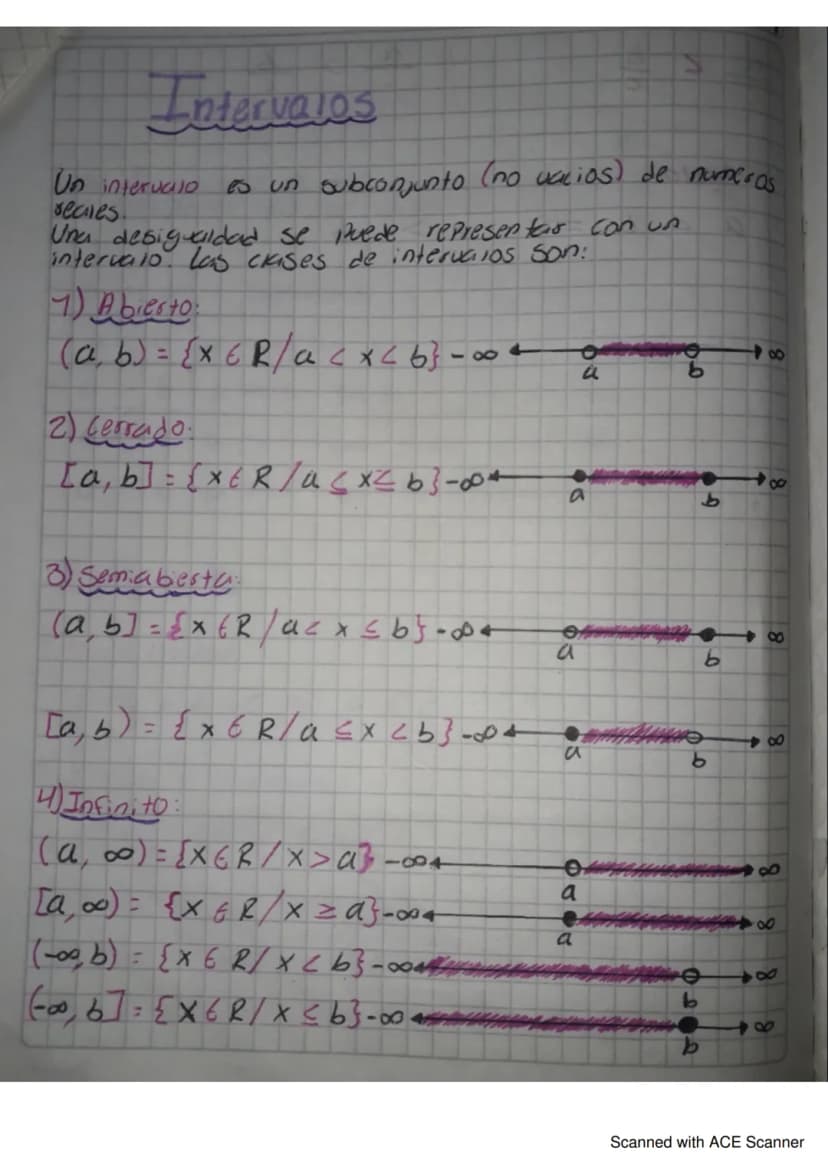 Intervalos
Un intervalo es un subconjunto (no vacios) de numeros
reales.
Una desigualdad se puede representar con un
intervalo. Las clases de intervalos son:
1) Abierto:
(a, b) = {x ∈ R / a < x < b} -∞ ∞
a b
2) Cerrado:
[a, b] = {x ∈ R / a ≤ x ≤ b} -∞ ∞
a b
3) Semiabierta:
(a, b] = {x ∈ R / a < x ≤ b} -∞ ∞
a b
[a, b) = {x ∈ R / a ≤ x < b} -∞ ∞
a b
4) Infinito:
(a, ∞) = {x ∈ R / x > a} -∞ ∞
a
[a, ∞) = {x ∈ R / x ≥ a} -∞ ∞
a
(-∞, b) = {x ∈ R / x < b} -∞ ∞
b
(-∞, b] = {x ∈ R / x ≤ b} -∞ ∞
b
Scanned with ACE Scanner